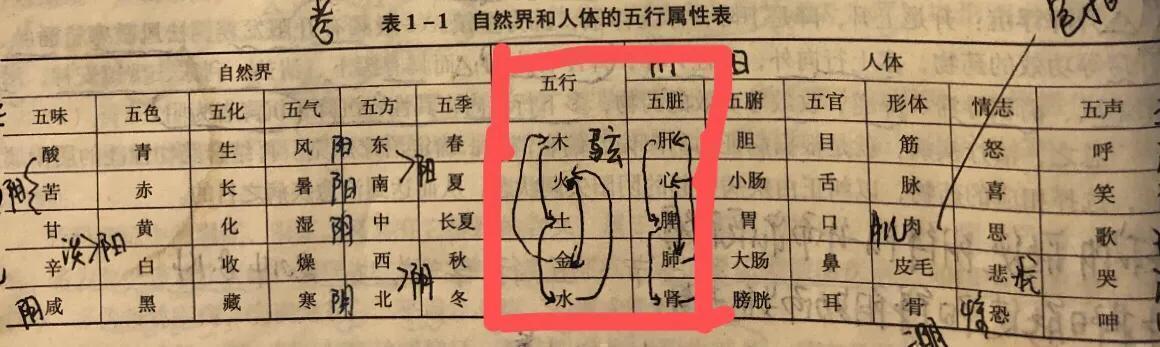 表1-1 自然界和人体的五行属性表
自然界 五行 人体
五味 五色 五化 五气 五方 五季 五脏 五腑 五官 形体 情志 五声
酸 青 生 风 阳 东 春 木 弦 肝 胆 目 筋 怒 呼
>阳
阴 苦 赤 长 暑 阳 南 夏 火 心 小肠 舌 脉 喜 笑
甘 黄 化 湿 阴 中 长夏 土 脾 胃 口 肌肉 思 歌
淡>阳
辛 白 收 燥 西 秋 金 肺 大肠 鼻 皮毛 悲 忧 哭
>阴
阴 咸 黑 藏 寒 阴 北 冬 水 肾 膀胱 耳 骨 恐 呻